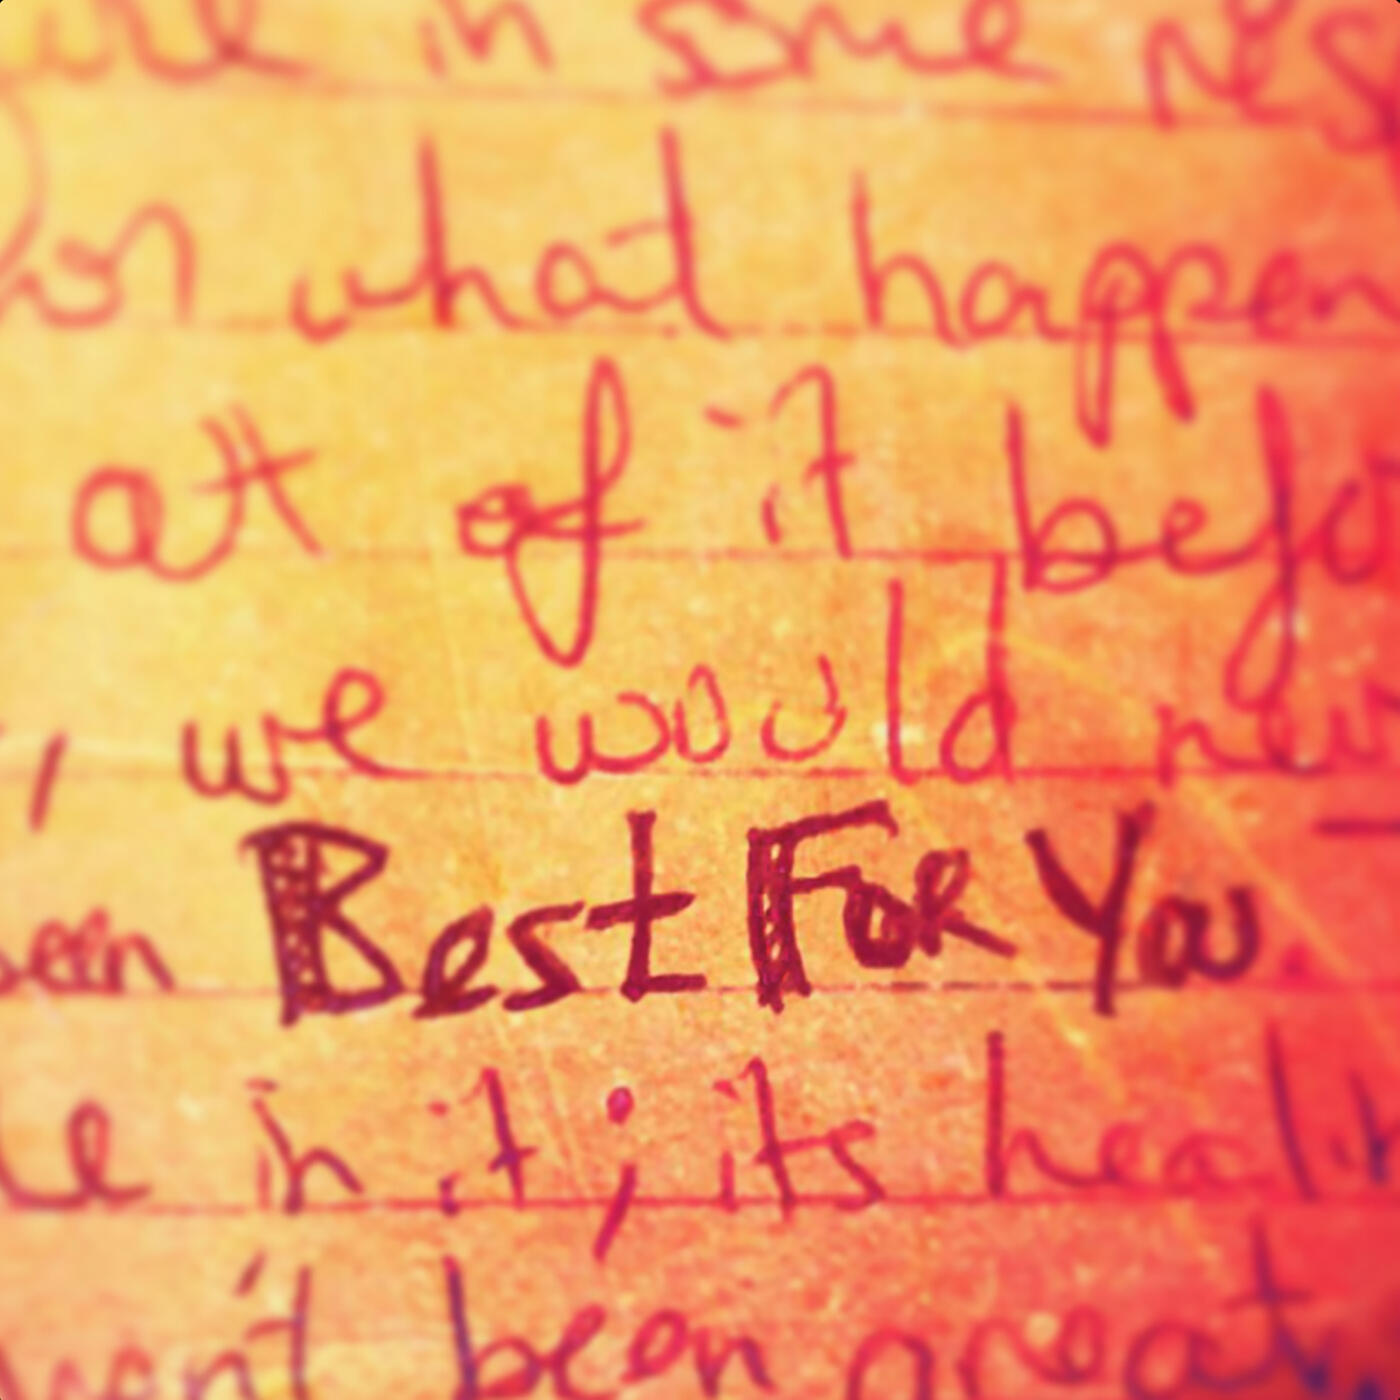 in some
what happen
at of it befo
, we would
been Best For You
in it; its
been great,